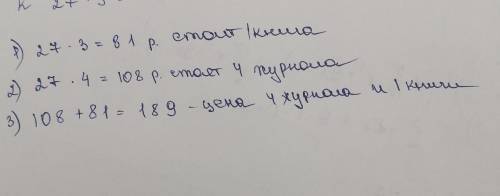 1) 27 · 3 = 81 р. стоит 1 книга
2) 27 · 4 = 108 р. стоят 4 журнала
3) 108 + 81 = 189 - цена 4 журнала и 1 книги